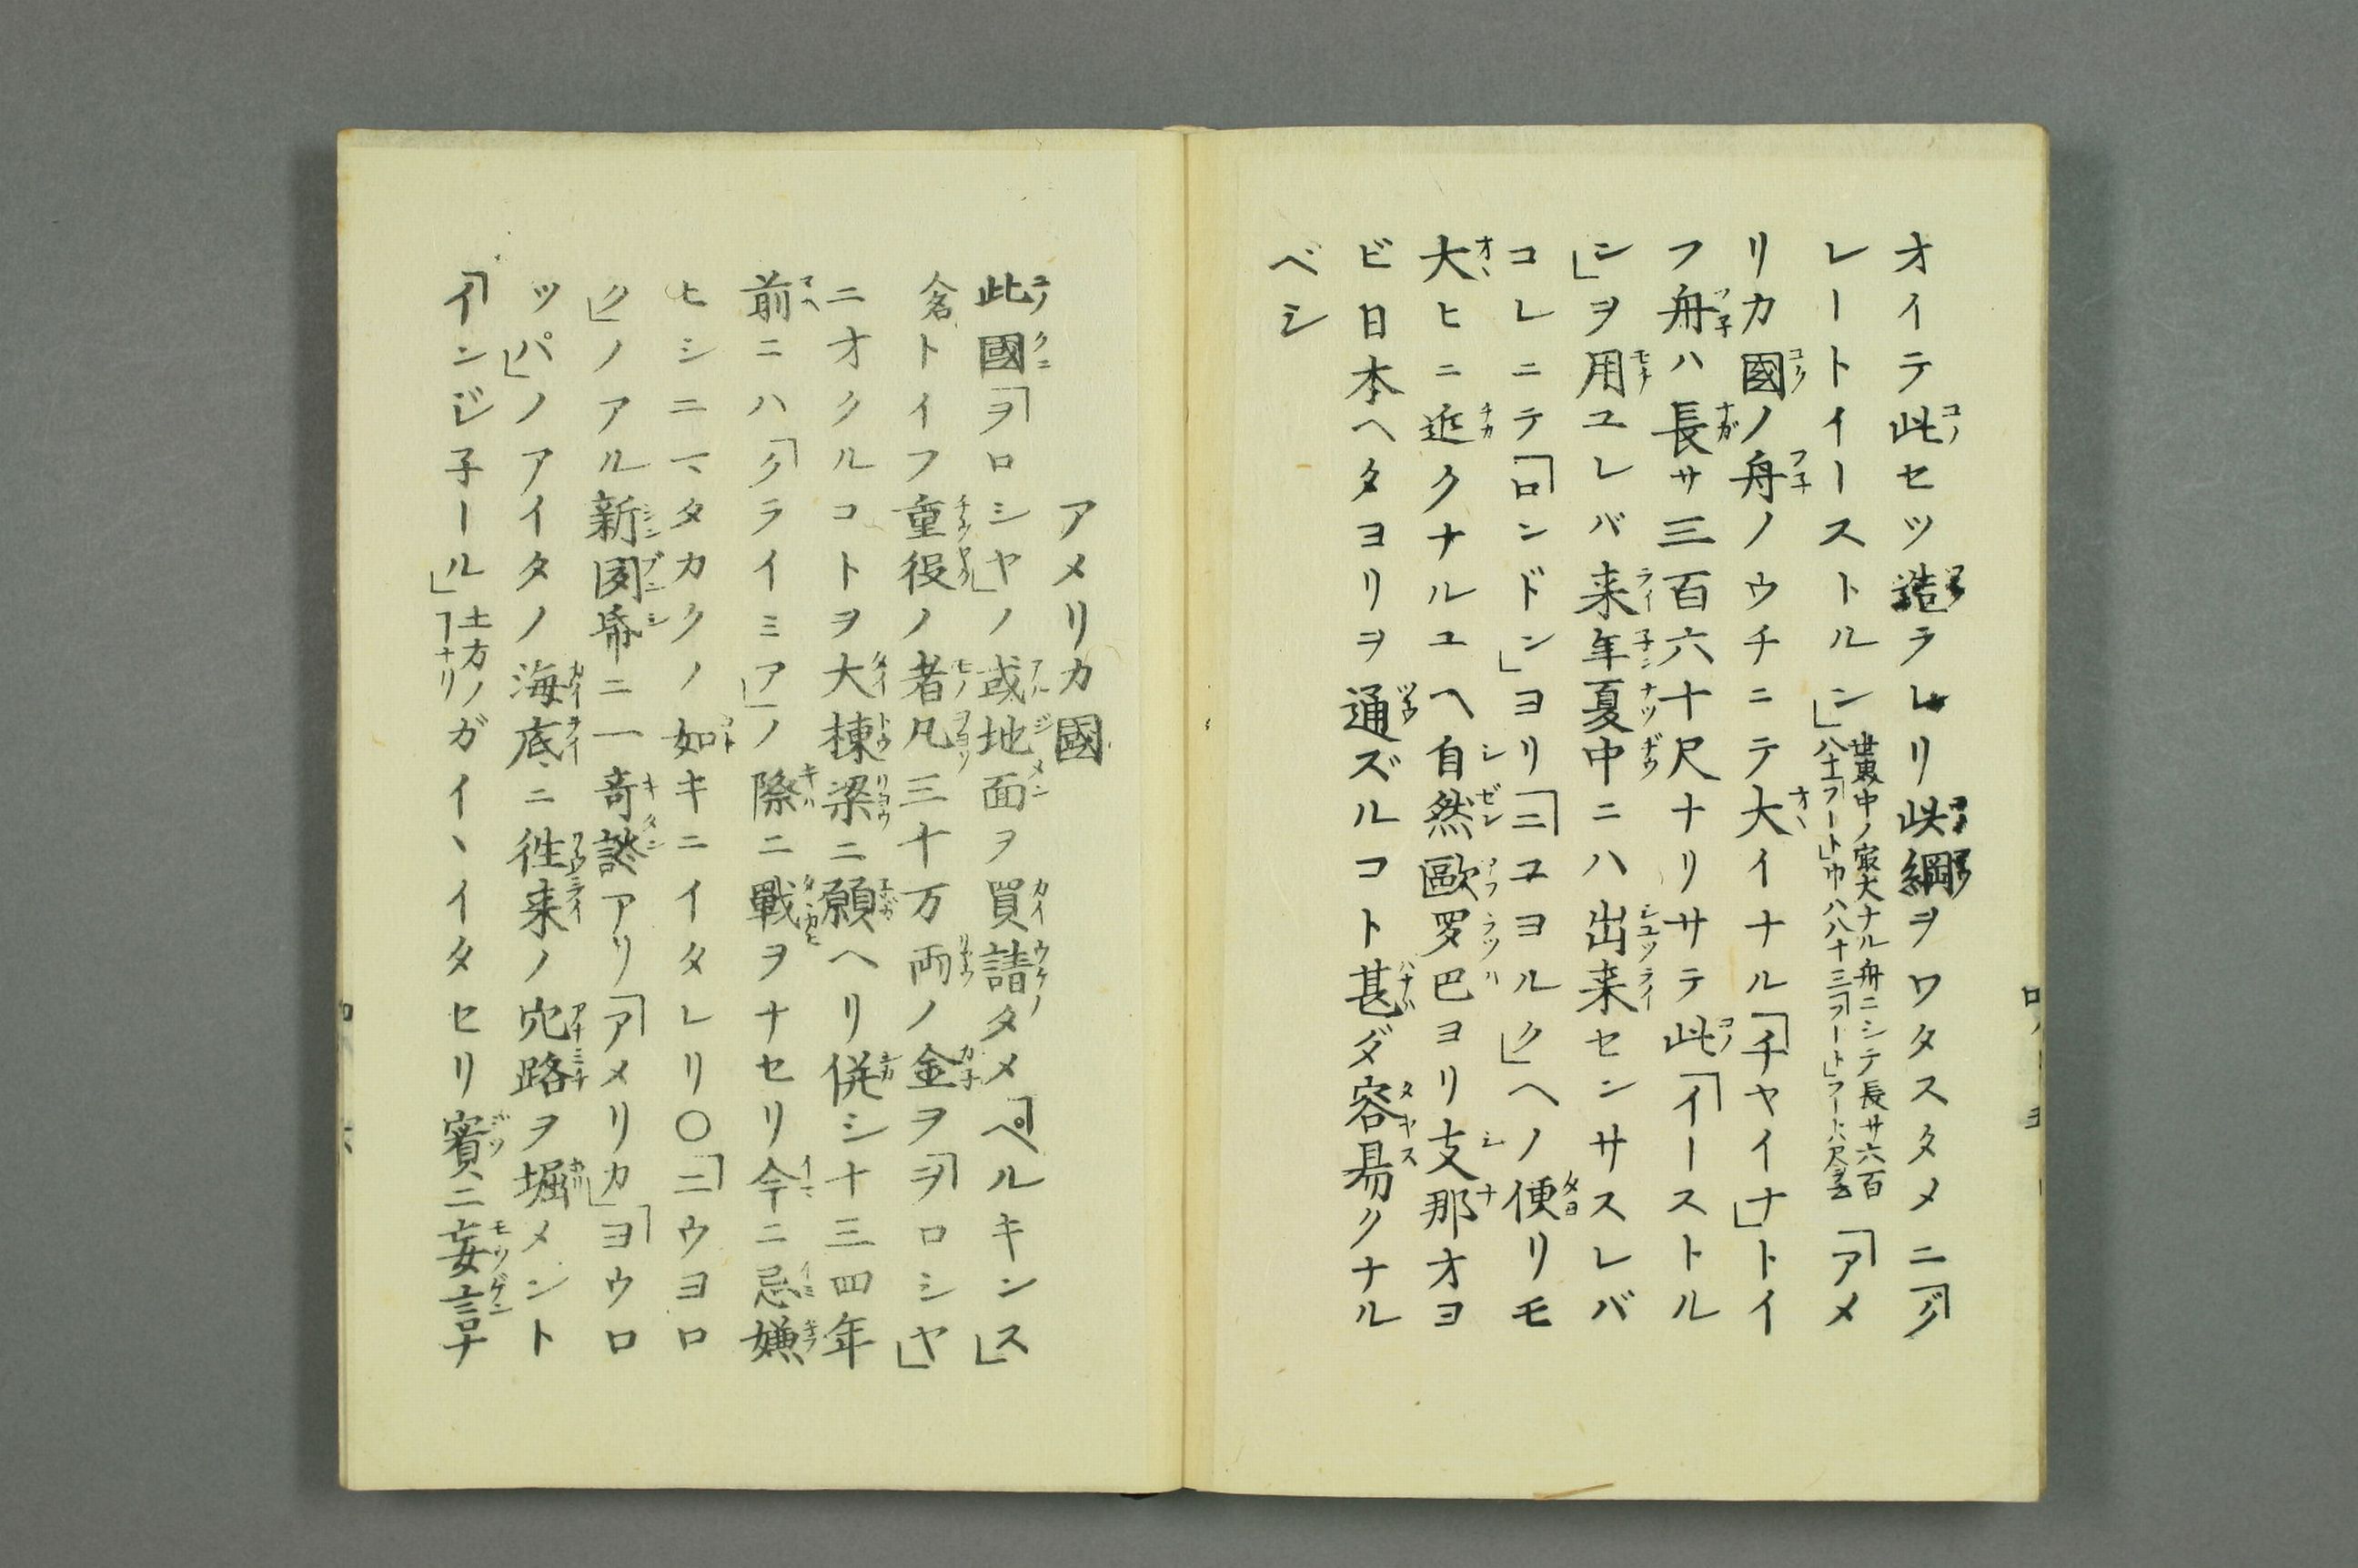 オイテ此セツ造ラレリ此綱ヲワタスタメニ「グ
レートイーストルン」世界中ノ最大ナル舟ニシテ長サ六百八十「フート」巾ハ八十三「フート」フートハ尺ヲ云「アメ
リカ國ノ舟ノウチニテ大イナル「チヤイナ」トイ
フ舟ハ長サ三百六十尺ナリサテ此「イーストル
ン」ヲ用ユレバ来年夏中ニハ出来センサスレバ
コレニテ「ロンドン」ヨリ「ニユヨルク」ヘノ便リモ
大ヒニ近クナルユヘ自然歐罗巴ヨリ支那オヨ
ビ日本ヘタヨリヲ通ズルコト甚ダ容易クナル
ベシ
アメリカ國
此國「ヲロシヤ」ノ或地面ヲ買請タメ「ペルキンス」
念トイフ重役ノ者凡三十万両ノ金ヲ「ヲロシヤ」
ニオクルコトヲ大棟梁ニ願ヘリ併シ十三四年
前ニハ「クライミア」ノ際ニ戰ヲナセリ今ニ忌嫌
ヒシニマタカクノ如キニイタレリ〇「ニウヨロ
ク」ノアル新聞帋ニ一奇談アリ「アメリカ」「ヨウロ
ツパ」ノアイタノ海底ニ徃来ノ穴路ヲ堀メント
「インジ子ール」土方ノコナリガイヽイタセリ實ニ妄言ナ